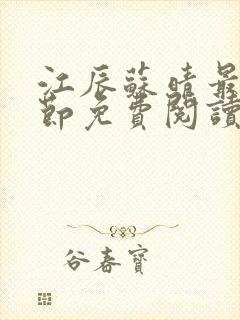 江辰蘇晴最
節免費閱讀
谷春寶